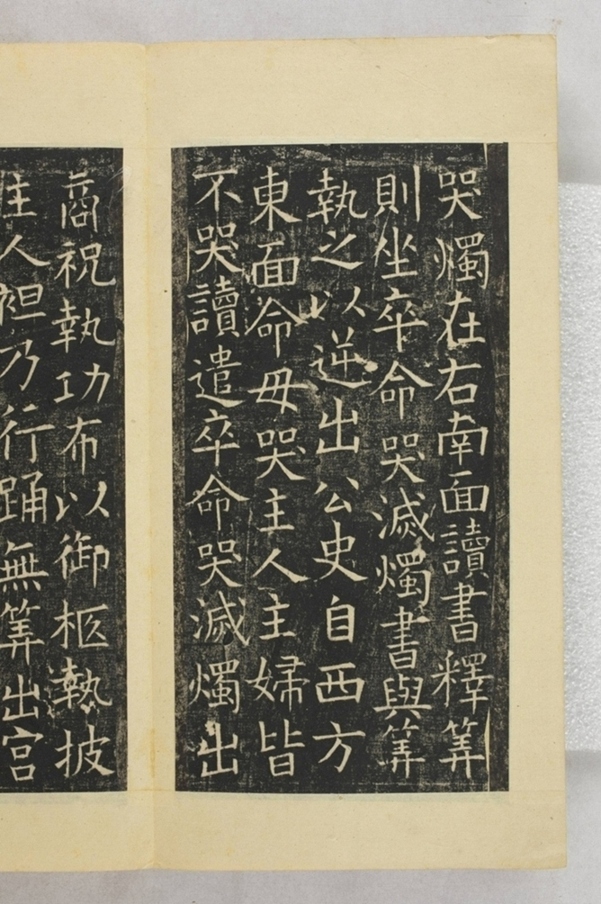 哭燭在右南面讀書釋筭
則坐卒命哭滅燭書與筭
執之以逆出公史自西方
東面命毋哭主人主婦皆
不哭讀遣卒命哭滅燭出
商祝執功布以御柩執披
主人袒乃行踊無筭出宮